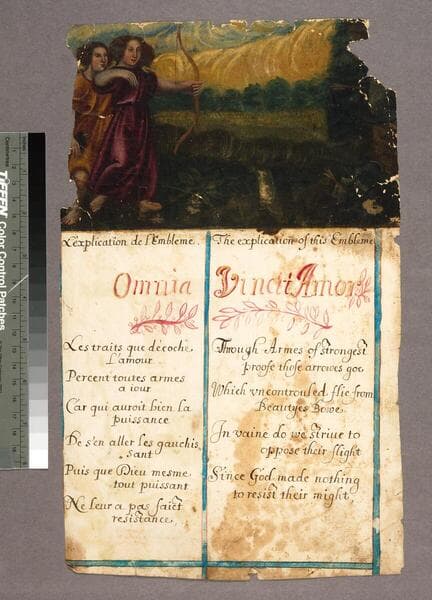 L'explication de l'Embleme.
The explication of this Embleme
Omnia Vincit Amor
Les traits que décoche
L'amour
Percent toutes armes
a iour
Car qui auroit bien la
puissance
De s'en aller les gauchis
sant
Puis que Dieu mesme
tout puissant
Ne leur a pas faict
resistance.
Through Armes of strongest
proofe those arrowes goe
Which uncontrouled flie from
Beautyes Bowe.
In vaine do we striue to
oppose their flight
Since God made nothing
to resist their might.
TIFFEN Color Control Patches
Centimetres
Inches